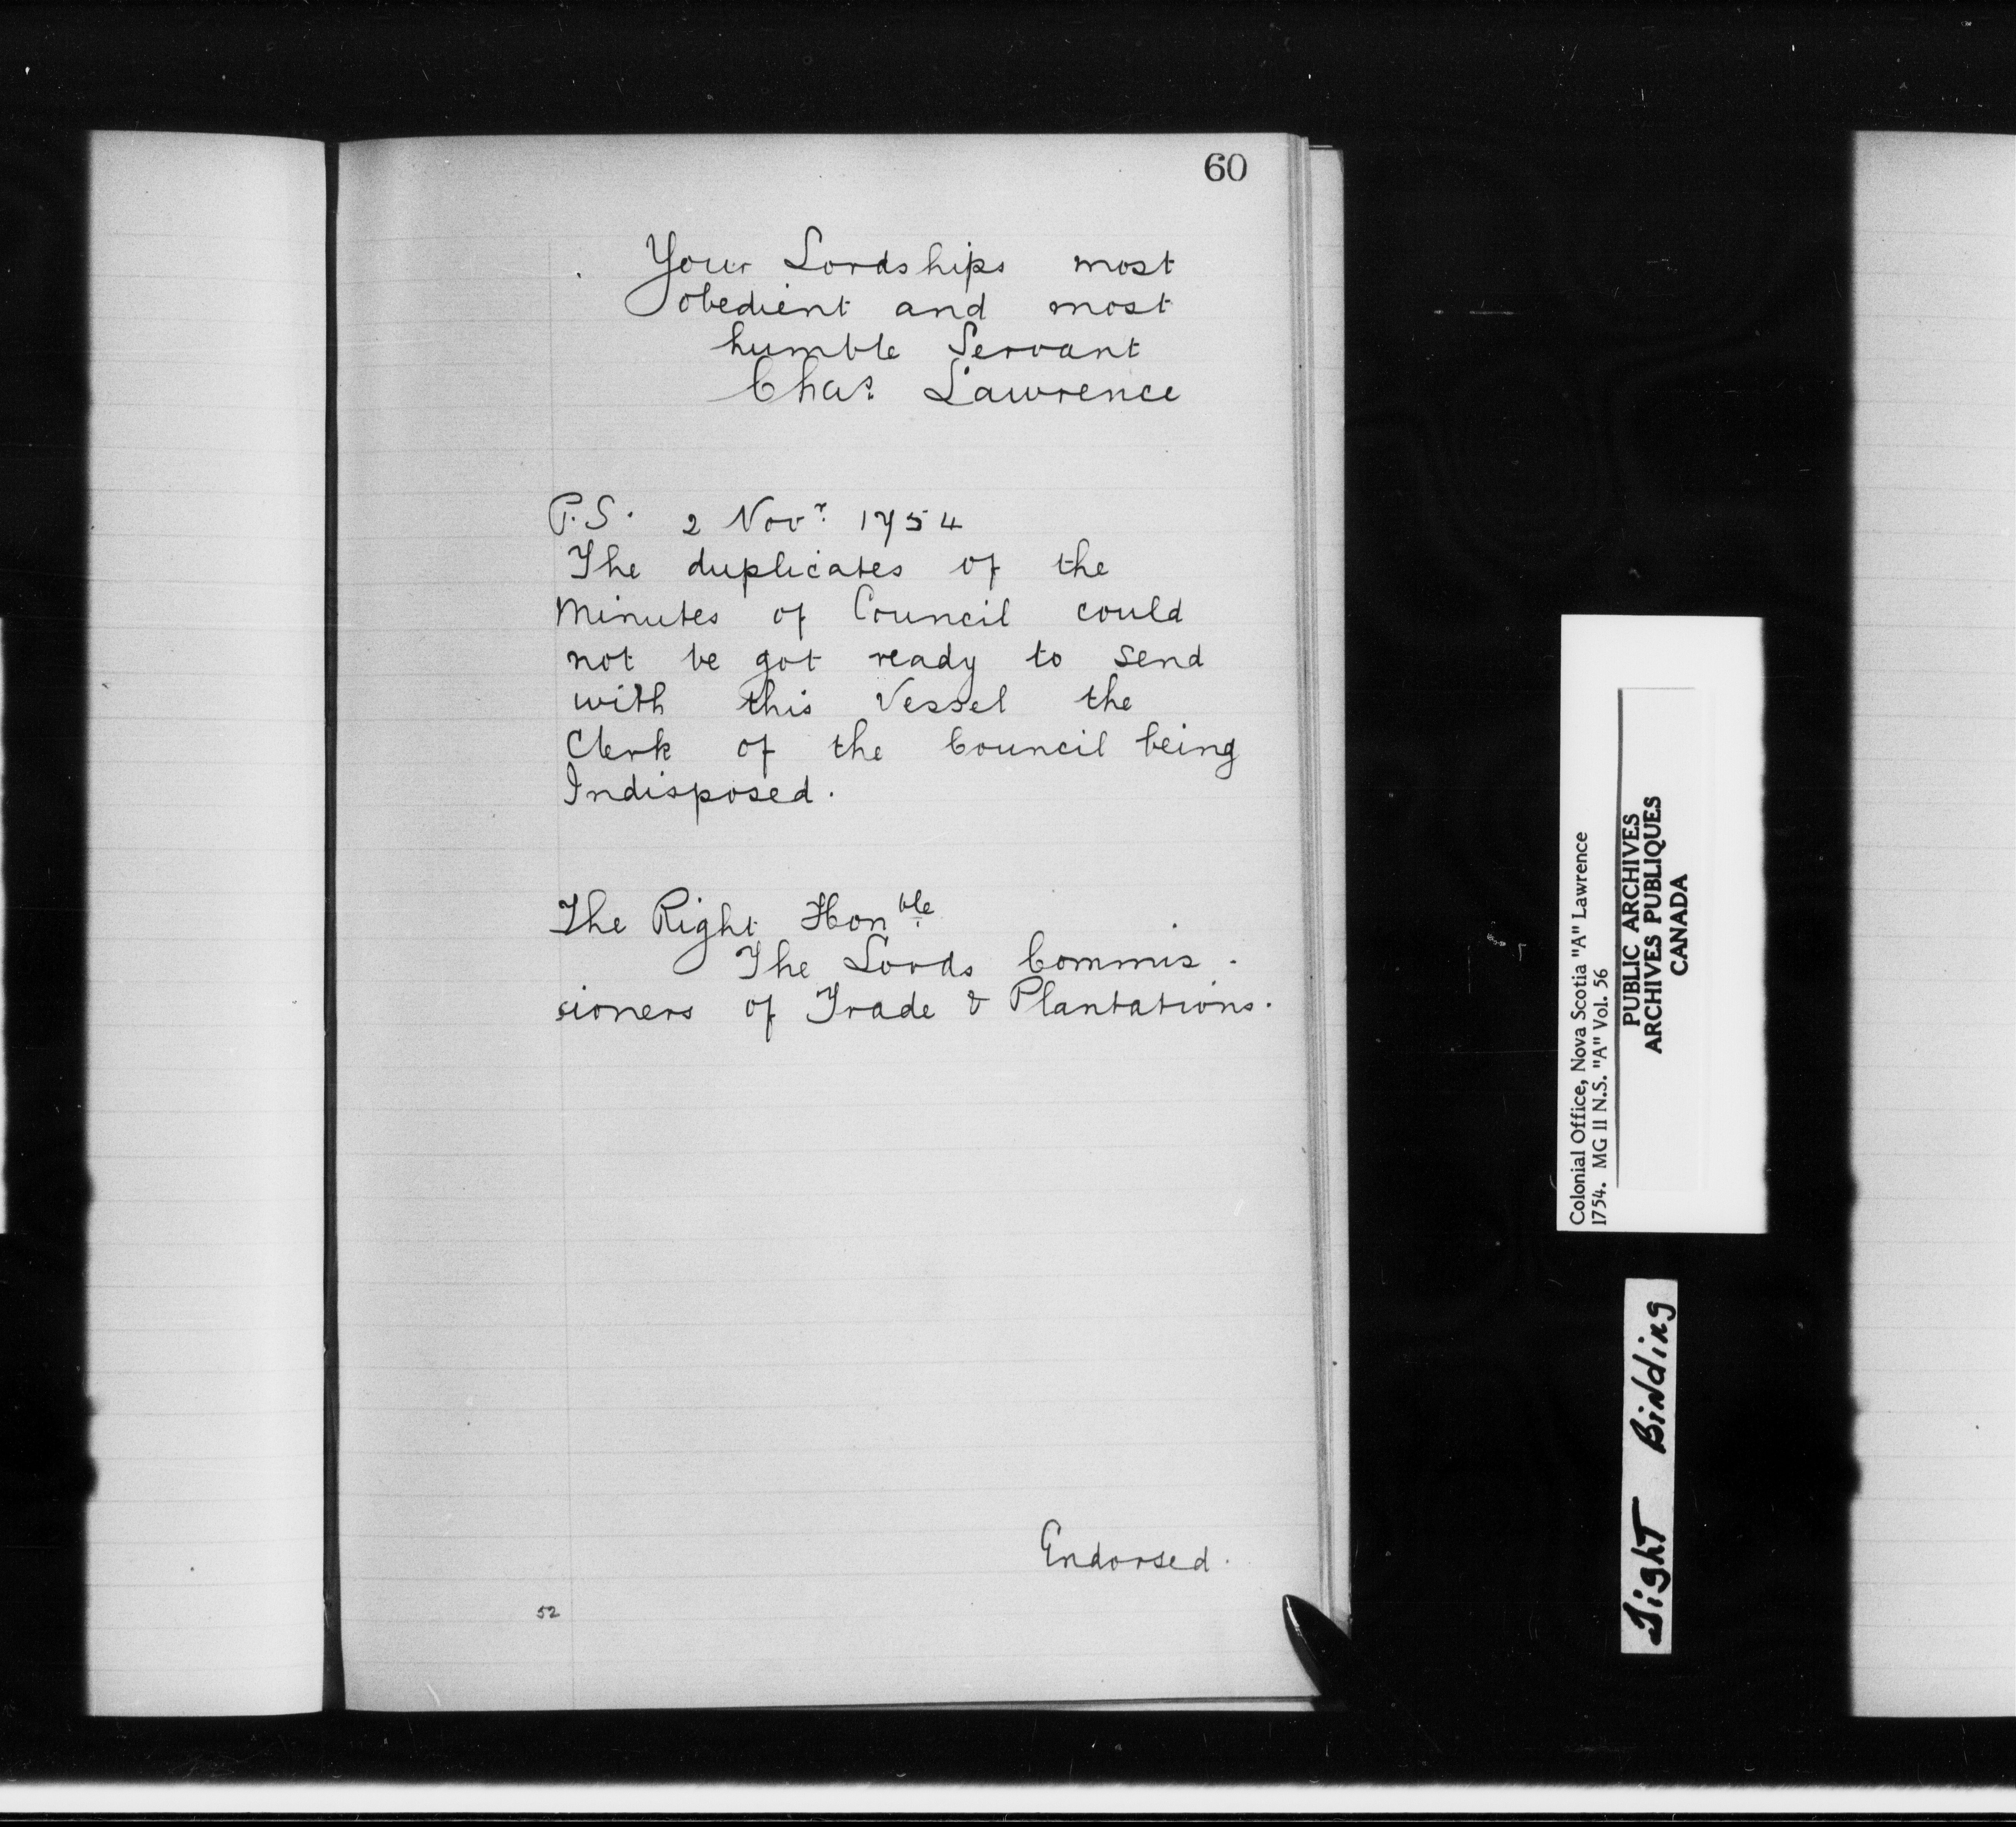 60
Your Lordships most
obedient and most
humble Servant
Chas. Lawrence
P.S. 2 Novr. 1754
The duplicates of the
Minutes of Council could
not be got ready to send
with this Vessel the
Clerk of the Council being
Indisposed.
The Right Honble.
The Lords Commis -
sioners of Trade & Plantations.
Endorsed.
52
Colonial Office, Nova Scotia "A" Lawrence
1754. MG 11 N.S. "A" Vol. 56
PUBLIC ARCHIVES
ARCHIVES PUBLIQUES
CANADA
Tight Binding